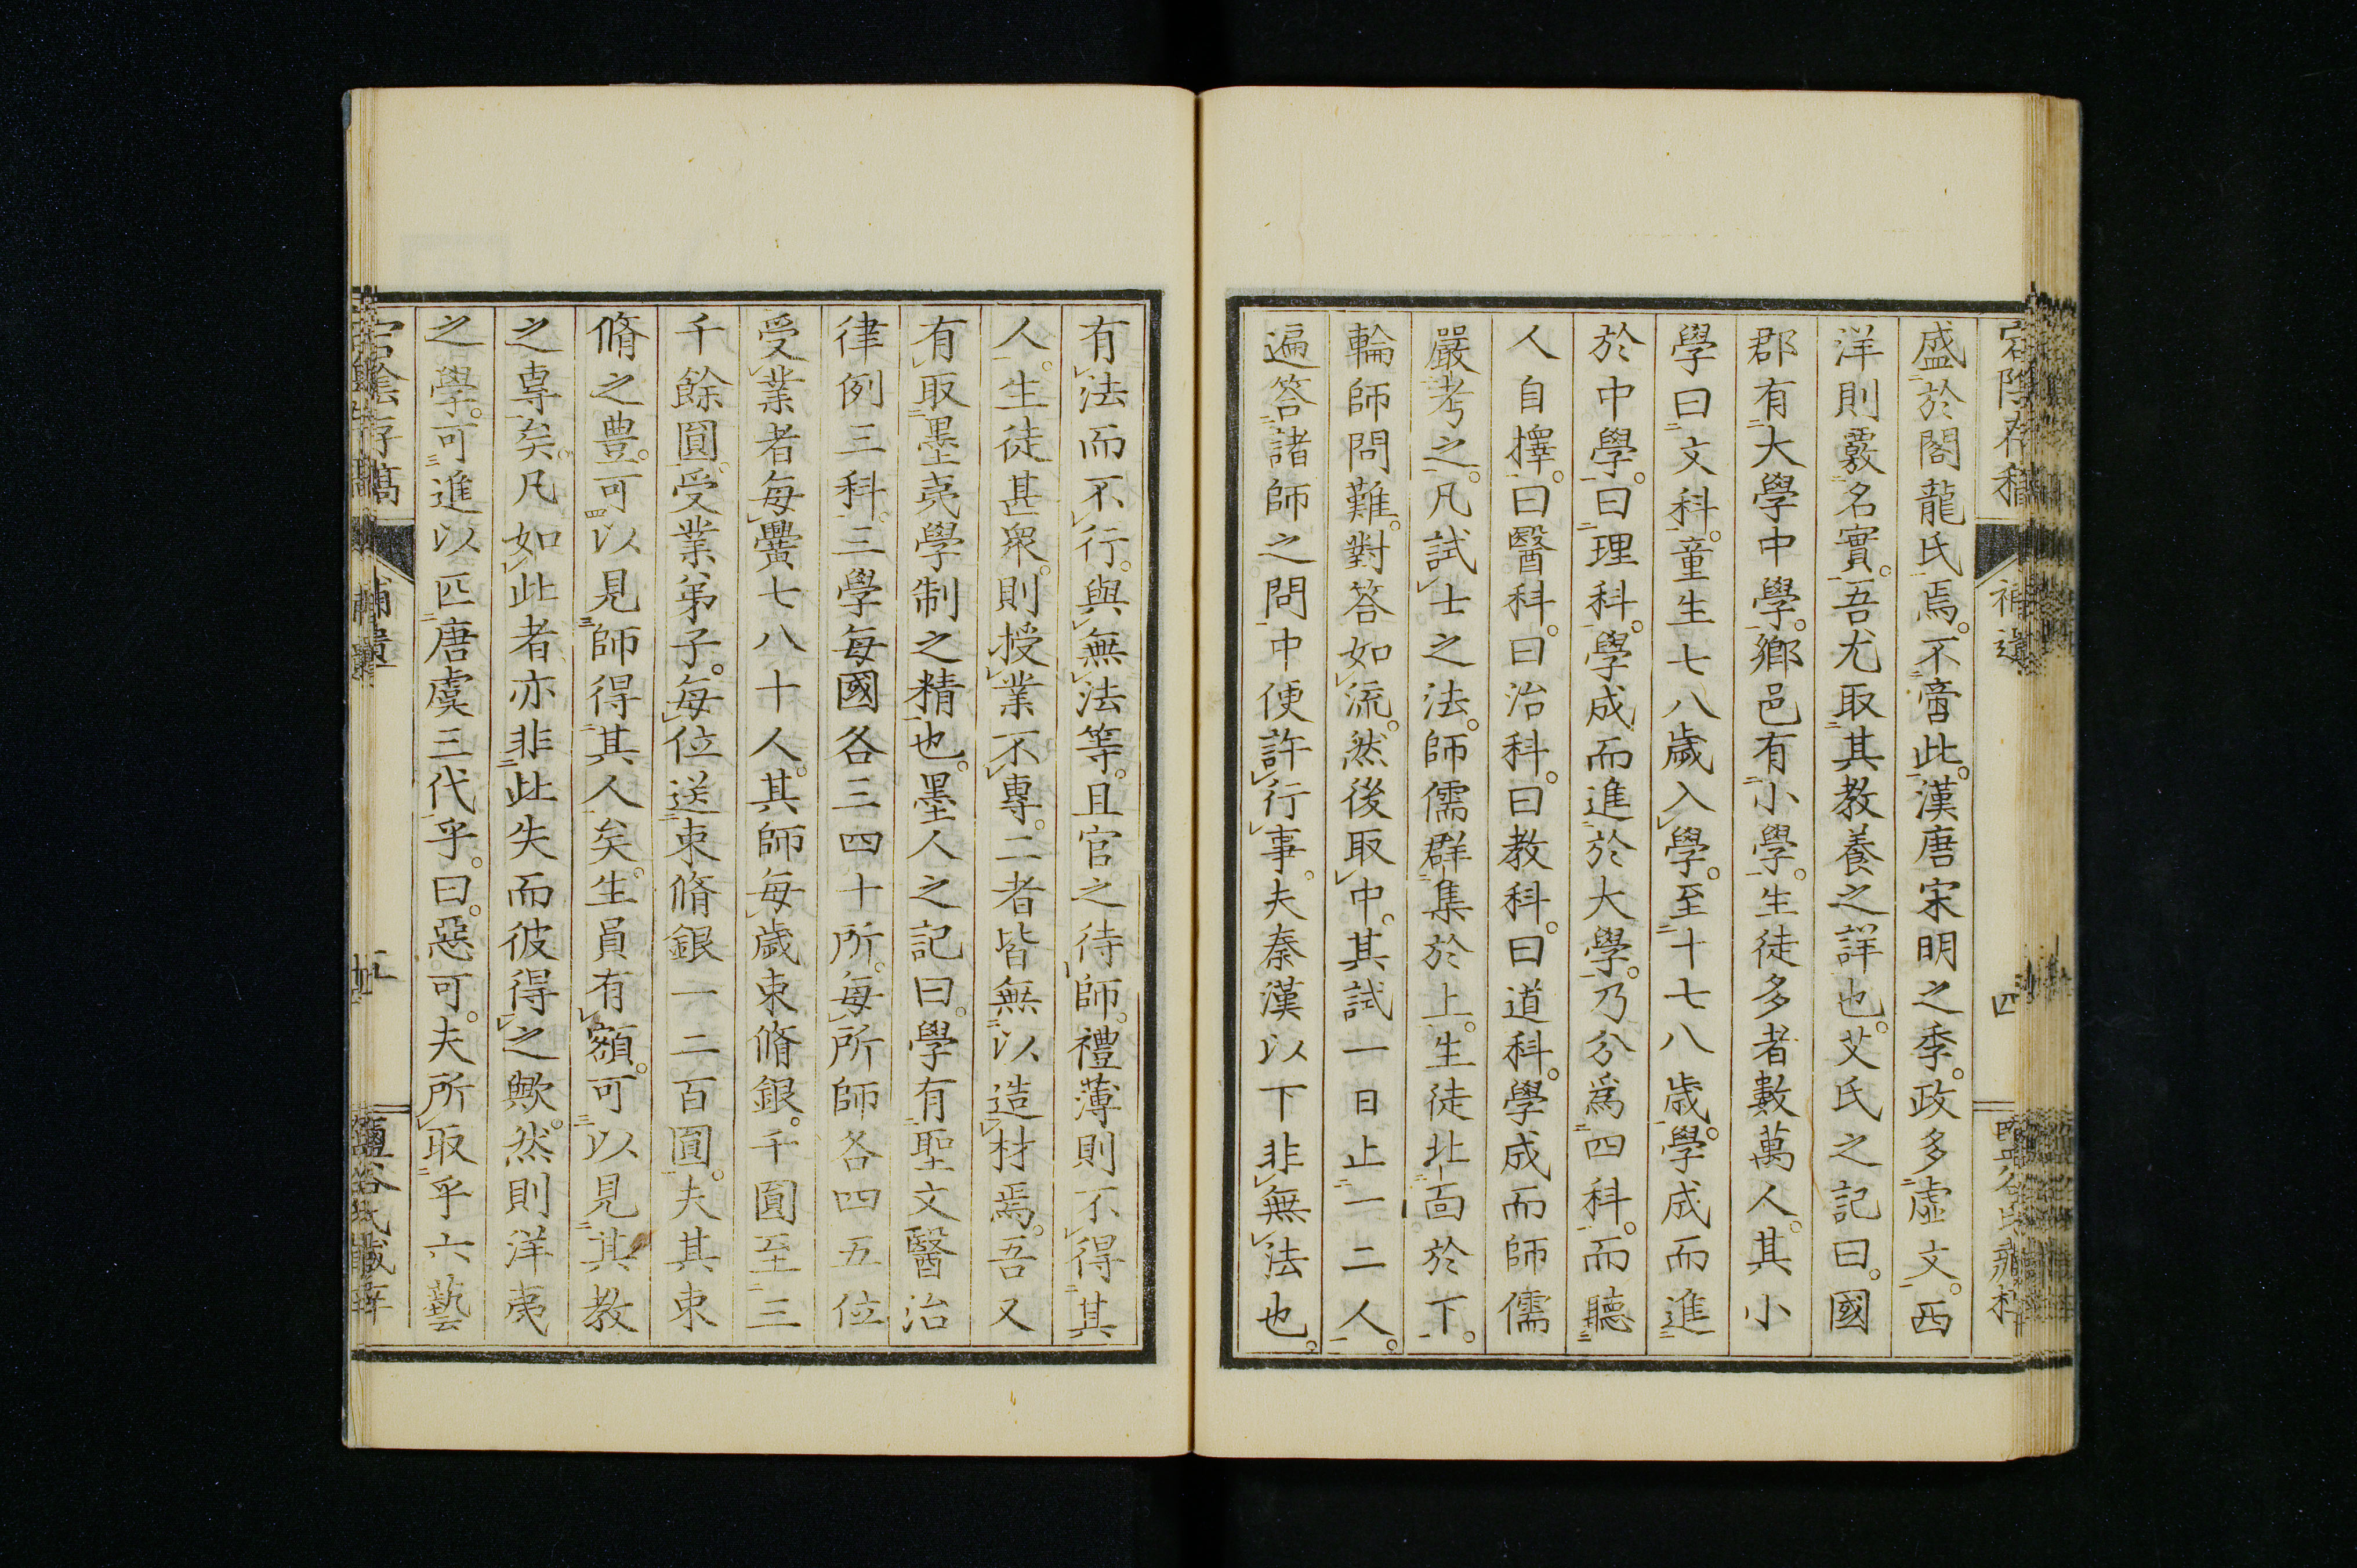 宕陰存稿 補遺 四
盛於閣龍氏焉。不啻此。漢唐宋明之季。政多虛文。西
洋則覈名實。吾尤取其教養之詳也。艾氏之記曰。國
郡有大學中學。鄉邑有小學。生徒多者數萬人。其小
學曰文科。童生七八歲入學。至十七八歲。學成而進
於中學。曰理科。學成而進於大學。乃分爲四科。而聽
人自擇。曰醫科。曰治科。曰教科。曰道科。學成而師儒
嚴考之。凡試士之法。師儒群集於上。生徒北面於下。
輪師問難。對答如流。然後取中。其試一日止一二人。
遍答諸師之問。中便許行事。夫秦漢以下非無法也。
有法而不行。與無法等。且官之待師。禮薄則不得其
人。生徒甚衆。則授業不專。二者皆無以造材焉。吾又
有取墨夷學制之精也。墨人之記曰。學有聖文醫治
律例三科。三學每國各三四十所。每所師各四五位
受業者每黌七八十人。其師每歲束脩銀。千圓至三
千餘圓。受業弟子。每位送束脩銀一二百圓。夫其束
脩之豊。可以見師得其人矣。生員有額。可以見其教
之専矣。凡如此者亦非此失而彼得之歟。然則洋夷
之學。可進以匹唐虞三代乎。曰。惡可。夫所取乎六藝
宕陰存稿 補遺 五